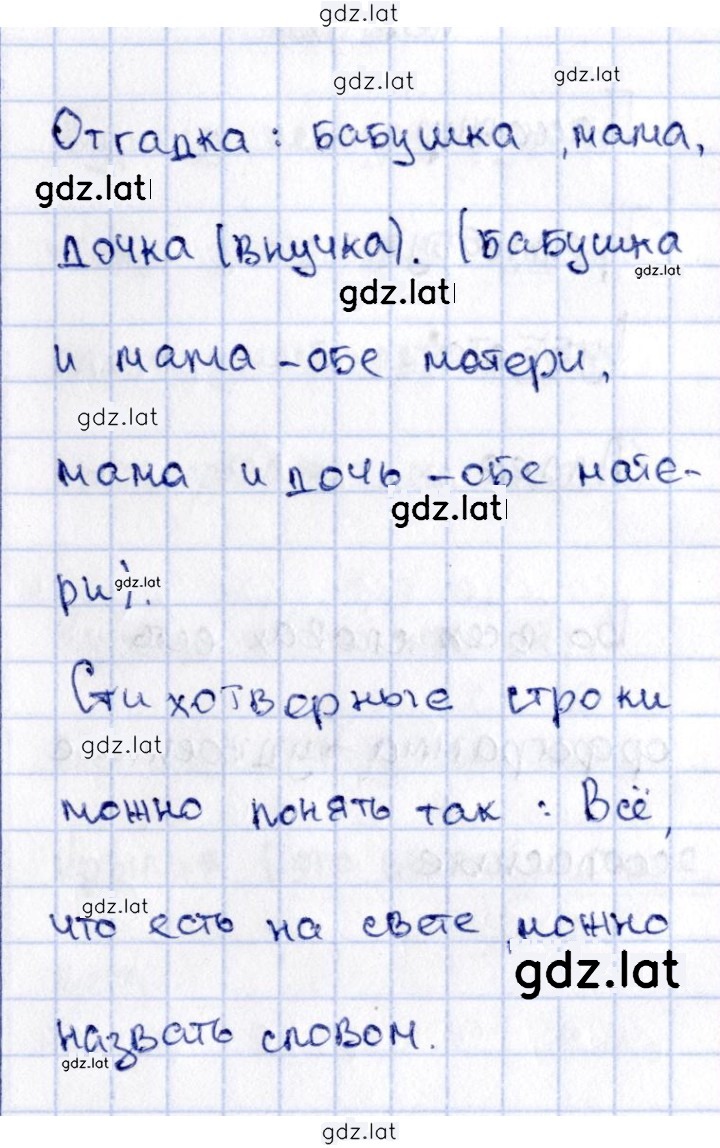 gdz.lat
gdz.lat gdz.lat
Отгадка: бабушка, мама,
gdz.lat
дочка (внучка). (бабушка
gdz.lat
gdz.lat
и мама - обе матери,
gdz.lat
мама и дочь - обе мате-
gdz.lat
ри). gdz.lat
Стихотверные строки
gdz.lat
можно понять так: Всё,
gdz.lat
что есть на свете, можно
gdz.lat
назвать словом.
gdz.lat
gdz.lat